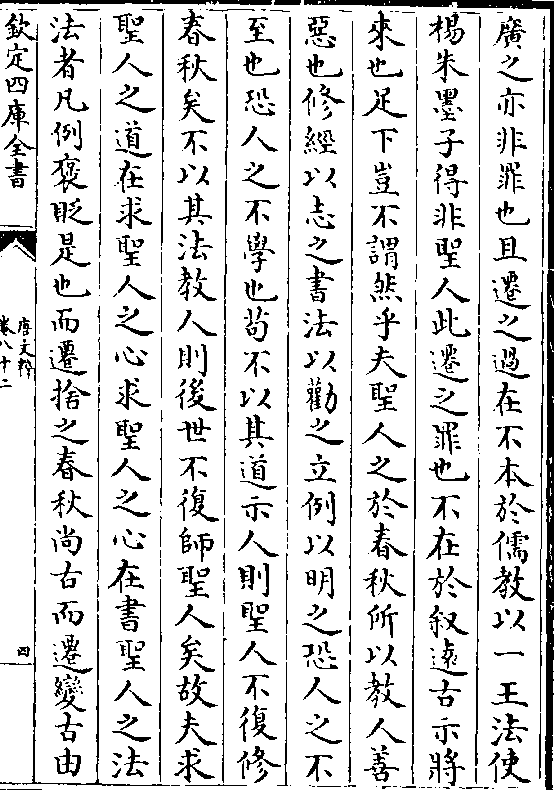 廣之亦非罪也且遷之過在不本於儒教以一王法使
楊朱墨子得非聖人此遷之罪也不在於叙遠古示將
來也足下豈不謂然乎夫聖人之於春秋所以教人善
惡也修經以志之書法以勸之立例以明之恐人之不
至也恐人之不學也茍不以其道示人則聖人不復修
春秋矣不以其法教人則後世不復師聖人矣故夫求
聖人之道在求聖人之心求聖人之心在書聖人之法
法者凡例襃貶是也而遷捨之春秋尚古而遷變古由
欽定四庫全書
唐文粹
卷八十二
四